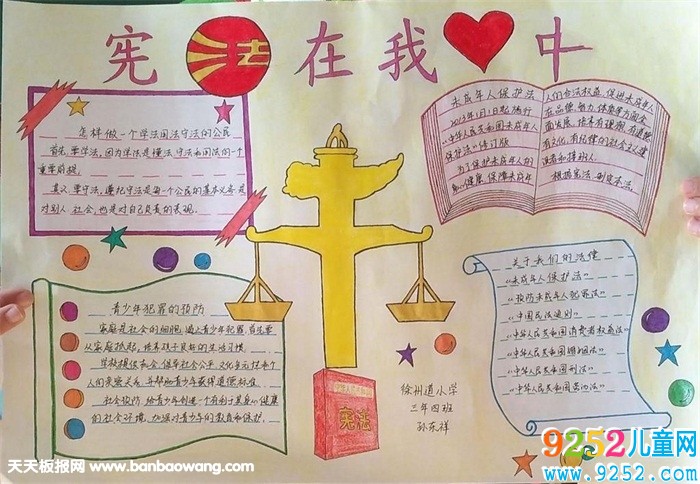 宪法在我中
怎样做一个学法用法守法的公民
首先要学法,因为学法是懂法、守法和用法的一个
重要前提。
其次要守法,遵纪守法是每个公民的基本义务是
对别人、社会,也是对自己负责的表现。
未成年人保护法
2013年1月1日起施行
《中华人民共和国未成年人
保护法》修订版
为了保护未成年人的
身心健康,保障未成年
人的合法权益,促进未成年人
在品德、智力、体质等方面全
面发展,培养有理想、有道德
有文化、有纪律的社会主义建
设者和接班人,
根据宪法,制定本法。
青少年犯罪的预防
家庭是社会的细胞,遏止青少年犯罪,首先要
从家庭抓起,培养孩子良好的生活习惯。
人们亲密关系,并帮助青少年获得道德标准。
社会预防,给青少年创造一个有利于其身心健康
的社会环境,加强对青少年的教育和保护。
关于我们的法律
《未成年人保护法》
《预防未成年人犯罪法》
《中国民法通则》
《中华人民共和国消费者权益法》
《中华人民共和国婚姻法》
《中华人民共和国刑法》
《中华人民共和国劳动法》
中华人民共和国
宪法
徐州道小学
三年四班
孙东祥
天天板报网 www.banbaowang.com
9252儿童网
www.9252.com